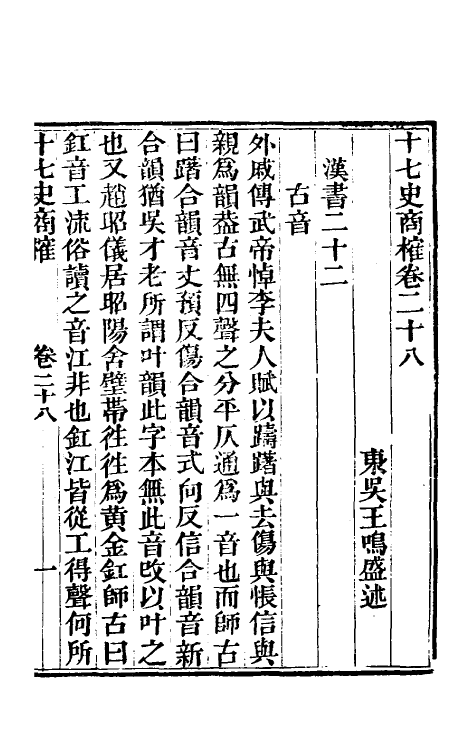 十七史商榷卷二十八
東吳王鳴盛述
漢書二十二
古音
外戚傳武帝悼李夫人賦以躊躇與去傷與悵信與
親爲韻葢古無四聲之分平仄通爲一音也而師古
曰躇合韻音丈預反傷合韻音式向反信合韻音新
合韻猶吳才老所謂叶韻此字本無此音改以叶之
也又趙昭儀居昭陽舍壁帶往往爲黄金釭師古曰
釭音工流俗讀之音江非也釭江皆從工得聲何所
十七史商榷 卷二十八 一